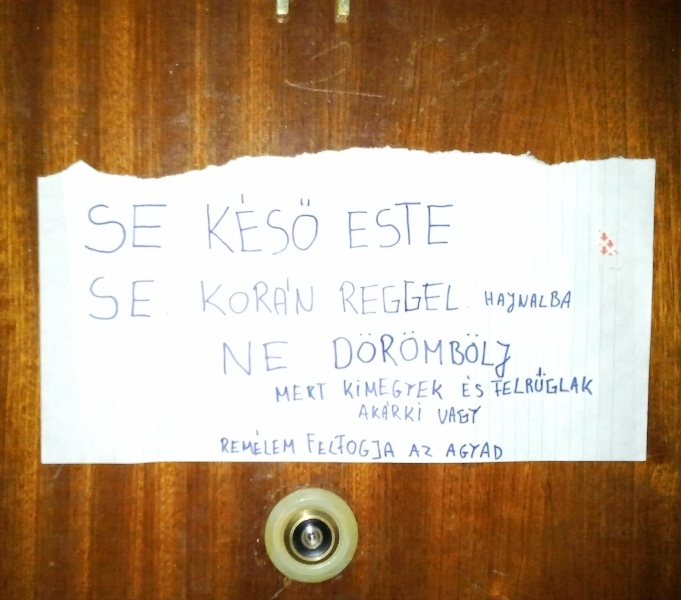 SE KÉSŐ ESTE
SE KORÁN REGGEL HAJNALBA
NE DÖRÖMBÖLJ
MERT KIMEGYEK ÉS FELRÚGLAK
AKÁRKI VAGY
REMÉLEM FELFOGJA AZ AGYAD